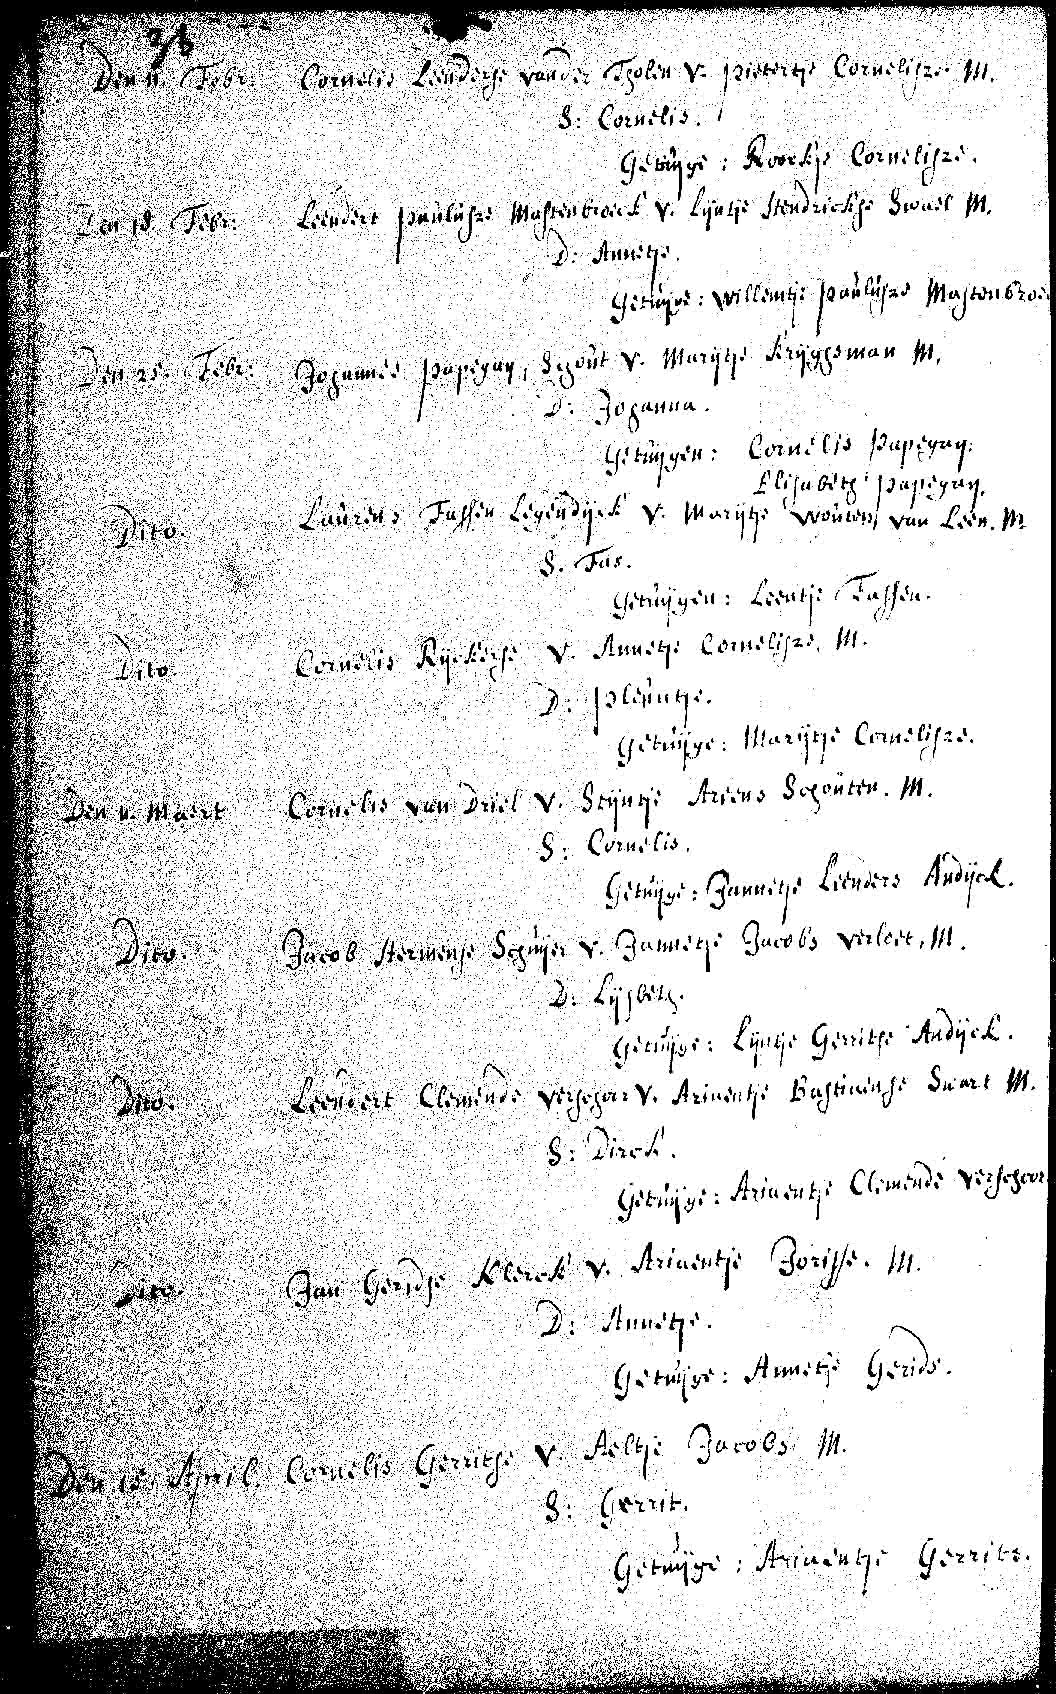 Den 11. Febr. Cornelis Leendertse vander Tholen V. Pietertje Cornelisze. M.
S: Cornelis.
Getuijge: Roockje Cornelisze.
Den 18. Febr: Leendert Paulusze Mastenbroeck V. Lijntje Hendrickse Swael M.
D: Annetje.
Getuijge: Willemtje Paulusze Mastenbroeck
Den 25. Febr: Johannes Papegay, Schout V. Marijtje Krijghsman M.
D: Johanna.
Getuijgen: Cornelis Papegay.
Elisabeth Papegay.
Dito. Laurens Fassen Legendijck V. Marijtje Wouters van Leen. M
S. Fas.
Getuijgen: Leentje Fassen.
Dito Cornelis Rijckertse V. Annetje Cornelisze. M.
D: Pleuntje.
Getuijge: Marijtje Cornelisze.
Den 11. Maert Cornelis van Driel V. Stijntje Ariens Schouten. M.
S: Cornelis.
Getuijge: Jannetje Leenders Andijck.
Dito. Jacob Hermense Schuijer V. Jannetje Jacobs Verloet. M.
D: Lijsbeth.
Getuijge: Lijntje Gerritse Andijck.
Dito. Leendert Clemende Verschoor V. Ariaentje Bastiaense Swart M.
S: Dirck.
Getuijge: Ariaentje Clemende Verschoor
Dito. Jan Geridse Klerck V. Ariaentje Jorisse. M.
D: Annetje.
Getuijge: Annetje Gerids.
Den 15. April. Cornelis Gerritse V. Aeltje Jacobs M.
S: Gerrit.
Getuijge: Ariaentje Gerrits.